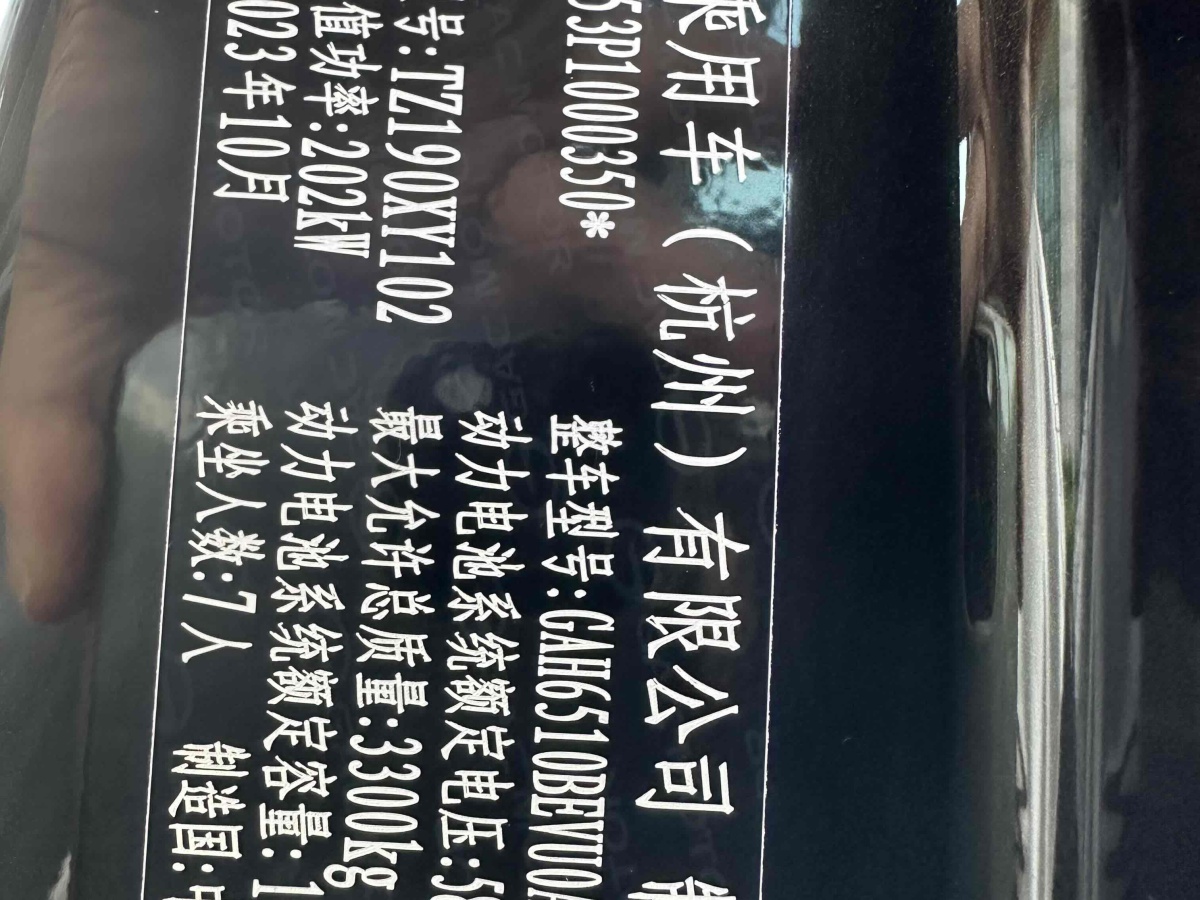 乘用车（杭州）有限公司
53P1000350* 整车型号:GAH6510BEVU0A
号:TZ190XY102 动力电池系统额定电压:58
值功率:202kW 最大允许总质量:3300kg
023年10月 动力电池系统额定容量:1
乘坐人数:7人 制造国:中